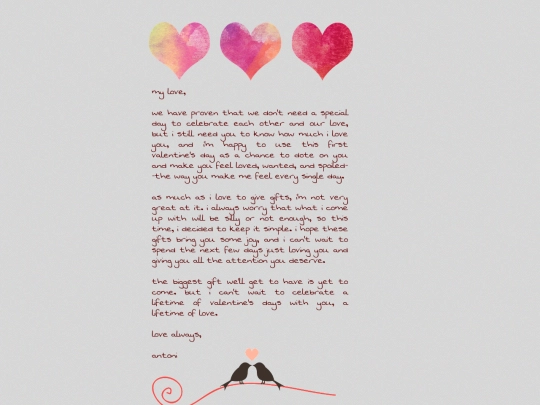 my love,
we have proven that we don't need a special
day to celebrate each other and our love,
but i still need you to know how much i love
you, and i'm happy to use this first
valentine's day as a chance to dote on you
and make you feel loved, wanted, and spoiled-
-the way you make me feel every single day.
as much as i love to give gifts, i'm not very
great at it. i always worry that what i come
up with will be silly or not enough, so this
time, i decided to keep it simple. i hope these
gifts bring you some joy, and i can't wait to
spend the next few days just loving you and
giving you all the attention you deserve.
the biggest gift we'll get to have is yet to
come. but i can't wait to celebrate a
lifetime of valentine's days with you, a
lifetime of love.
love always,
antoni